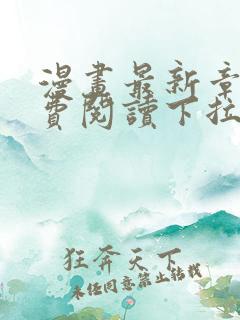 漫畫最新章
費閱讀下拉
狂奔天下
未經同意禁止轉載